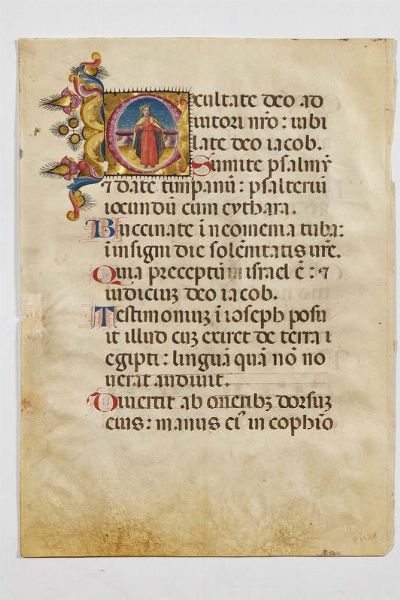 Exultate deo ad
iutori nr̄o: iubi
late deo iacob.
Sumite psalmū
⁊ date timpanū: psalteriū
iocundū cum cythara.
Buccinate ī neomenia tuba:
ī insigni die solēnitatis vr̄e.
Quia preceptū in israel ē: ⁊
iudiciuʒ deo iacob.
Testimoniuʒ ī ioseph posu
it illud cuʒ exiret de terra e
gipti: linguā quā nō no
uerat audiuit.
Diuertit ab oneribʒ dorsuʒ
eius: manus eiꝰ in cophīo